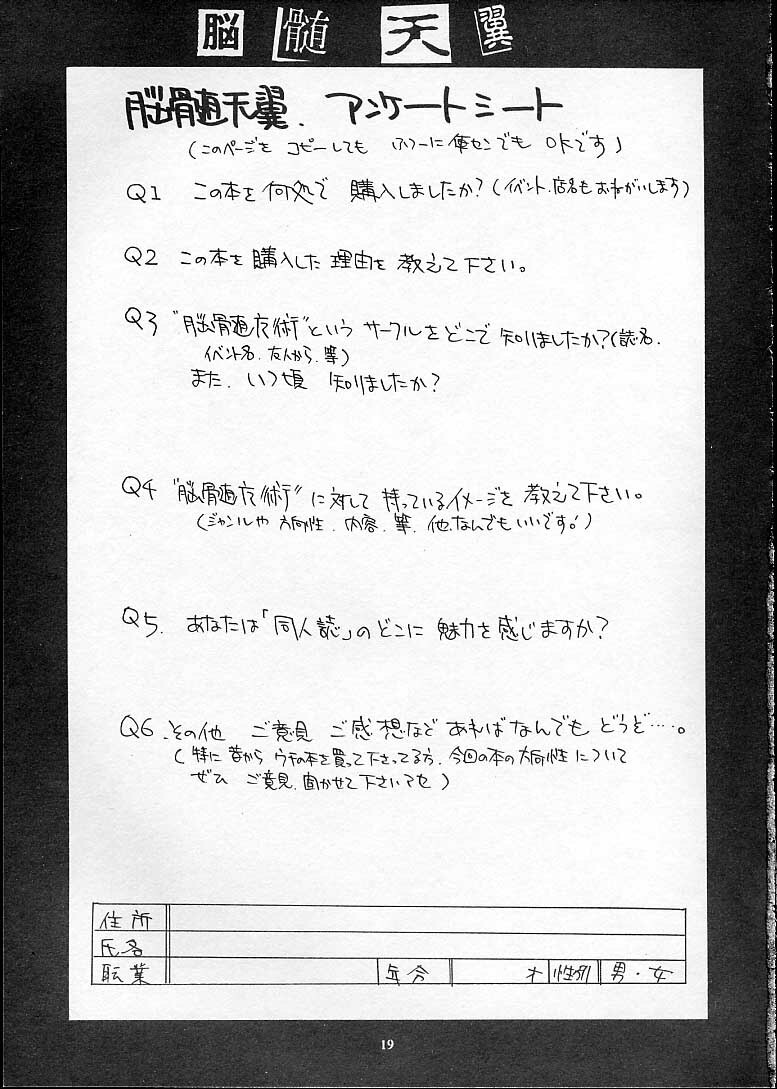 脳髄天翼
脳髄天翼.アンケートシート
(このページを コピーしても フツーに便センでも OKです)
Q1 この本を何処で 購入しましたか?(イベント.店名もおねがいします)
Q2 この本を購入した理由を 教えて下さい。
Q3 "脳髄魔術"という サークルをどこで 知りましたか?(誌名.
イベント名.友人から.等)
また.いつ頃 知りましたか?
Q4 "脳髄魔術"に対して 持っているイメージを教えて下さい。
(ジャンルや 方向性.内容.等.他.なんでもいいです!)
Q5. あなたは「同人誌」のどこに 魅力を感じますか?
Q6.その他 ご意見 ご感想など あればなんでも どうぞ…。
(特に昔から ウチの本を買って下さってる方.今回の本の方向性について
ぜひ ご意見.聞かせて下さいませ)
住所
氏名
職業 年令 才 性別 男・女
19